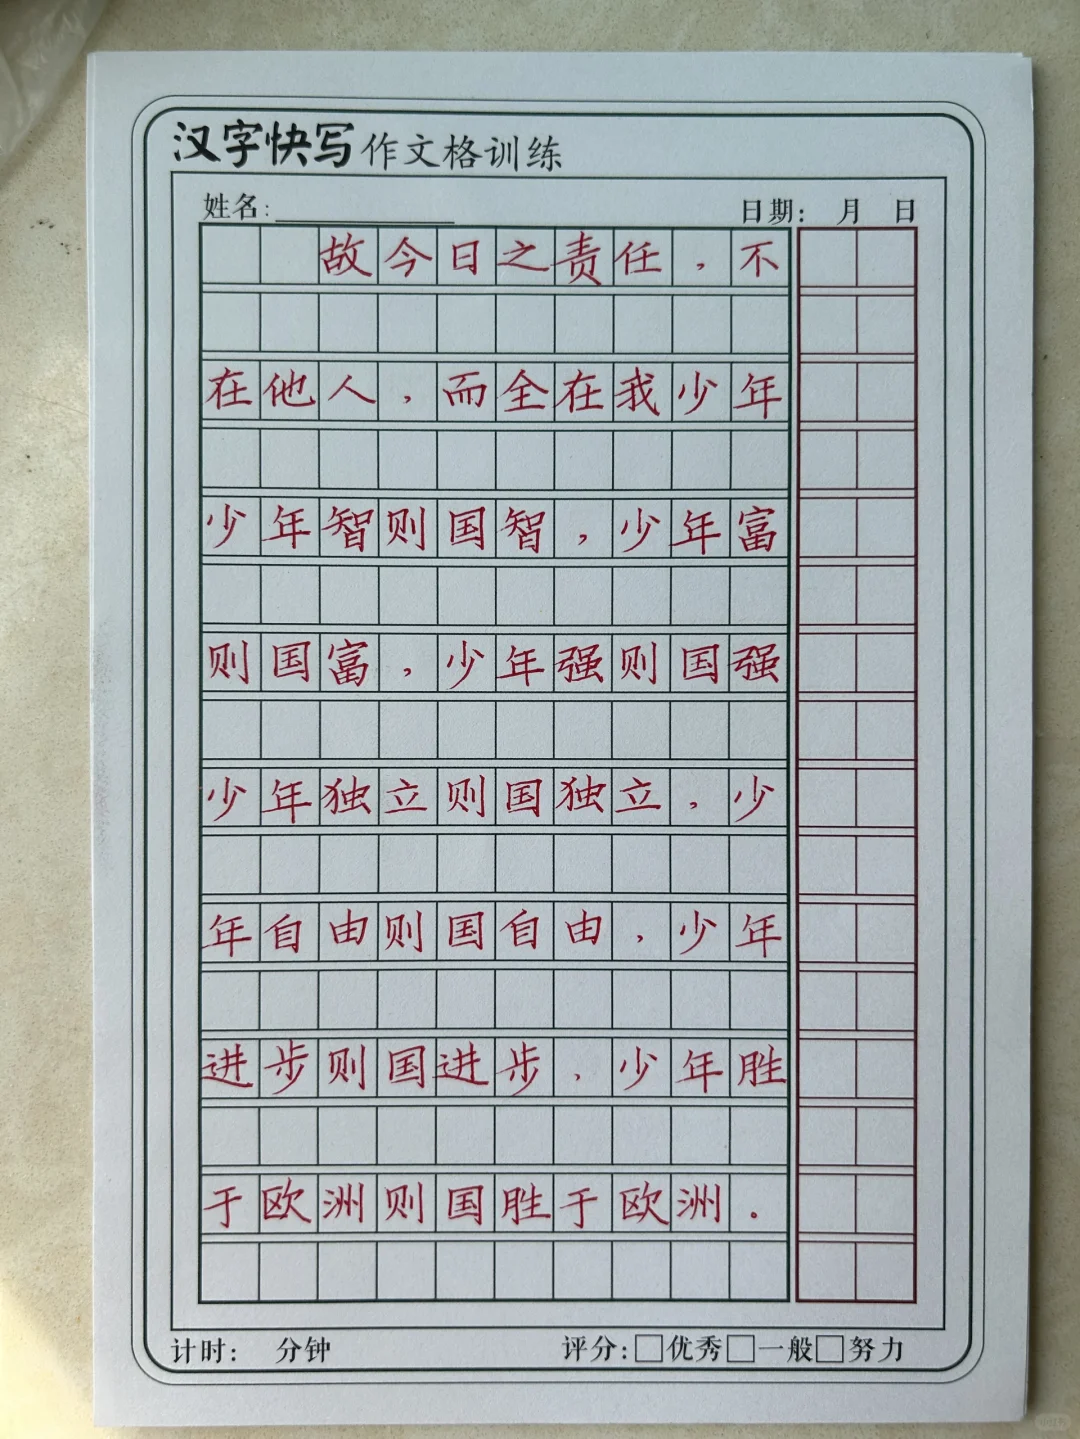 汉字快写作文格训练
姓名: 日期: 月 日
故今日之责任，不
在他人，而全在我少年
少年智则国智，少年富
则国富，少年强则国强
少年独立则国独立，少
年自由则国自由，少年
进步则国进步，少年胜
于欧洲则国胜于欧洲.
计时: 分钟 评分:□优秀□一般□努力
小红书